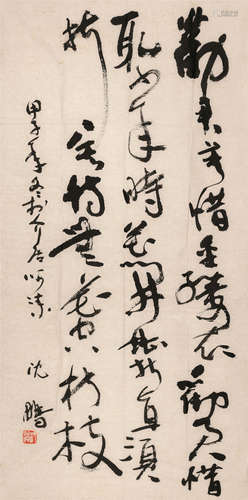 勸君莫惜金縷衣勸君惜
取少年時花開堪折直須
折莫待無花空折枝
甲子季冬於介居呵凍 沈鵬